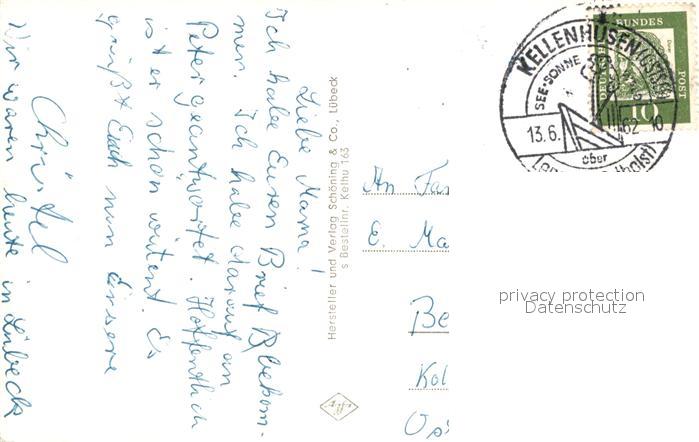 Liebe Mama!
Ich habe Euren Brief bekom-
men. Ich habe darauf an
Peter geantwortet. Hoffentlich
ist er schon wütend. Es
grüßt Euch nun Eure
Christel
Wir waren heute in Lübeck
Hersteller und Verlag Schöning & Co., Lübeck
s Bestellnr. Kelhu 163
An Fa
E. Ma
Be
Kol
KELLENHUSEN (OSTSEE)
SEE-SONNE
13.6.62-10
über
DEUTSCHE BUNDESPOST
10
privacy protection
Datenschutz